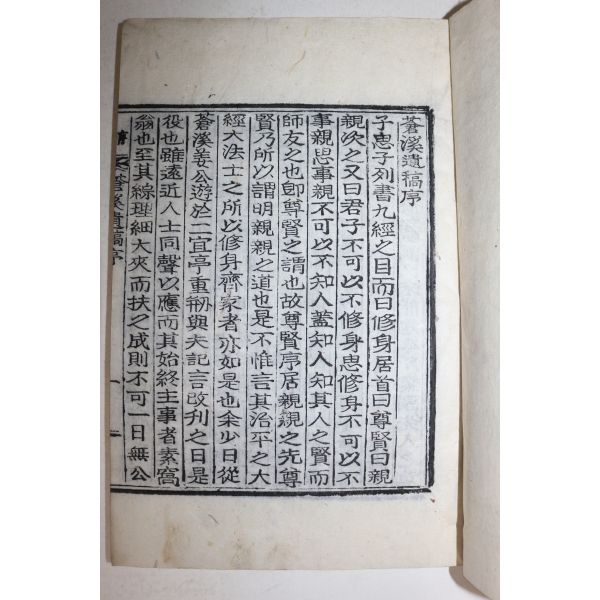 蒼溪遺稿序
子思子列書九經之目而曰修身居首曰尊賢曰親
親次之又曰君子不可以不修身思修身不可以不
事親思事親不可以不知人蓋知人知其人之賢而
師友之也卽尊賢之謂也故尊賢序居親親之先尊
賢乃所以謂明親親之道也是不惟言其治平之大
經大法士之所以修身齊家者亦如是也余少日從
蒼溪姜公遊於二宜亭重刱與夫記言改刊之日是
役也雖遠近人士同聲以應而其始終主事者素窩
翁也至其綜理細大夾而扶之成則不可一日無公
蒼溪遺稿序
一